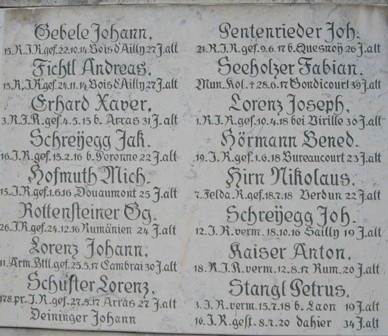 Gebele Johann.
15.R.I.R.gef.22.10.14 Bois d'Ailly 27 J.alt
Fichtl Andreas.
15.R.I.R.gef.21.11.14 Bois d'Ailly 27 J.alt
Erhard Xaver.
3.R.I.R.gef.4.5.15 b. Arras 31 J.alt
Schreijegg Jak.
16.I.R.gef.15.2.16 b. Peronne 22 J.alt
Hofmuth Mich.
15.I.R.gef.1.6.16 Douaumont 25 J.alt
Rottensteiner Gg.
26.I.R.gef.24.12.16 Rumänien 24 J.alt
Lorenz Johann.
11.Arm.Btl.gef.25.5.17 Cambrai 30 J.alt
Schüster Lorenz.
178.pr.I.R.gef.27.5.17 Arras 27 J.alt
Deininger Johann
Pentenrieder Joh.
21.R.I.R.gef.9.6.17 b. Quesnoy 26 J.alt
Seeholzer Fabian.
Mun.Kol. † 28.6.17 Gondicourt 39 J.alt
Lorenz Joseph.
1.R.I.R.gef.10.4.18 bei Virille 30 J.alt
Hörmann Bened.
19.I.R.gef.1.6.18 Bureaucourt 23 J.alt
Hirn Nikolaus.
7.Felda.R.gef.18.7.18 Verdun 22 J.alt
Schreijegg Joh.
12.I.R.verm.18.10.16 Sailly 19 J.alt
Kaiser Anton.
18.R.I.R.verm.12.8.17 Rum. 20 J.alt
Stangl Petrus.
3.I.R.verm.15.7.18 b. Laon 19 J.alt
16.I.R.gest.8.7.20 dahier 24 J.alt